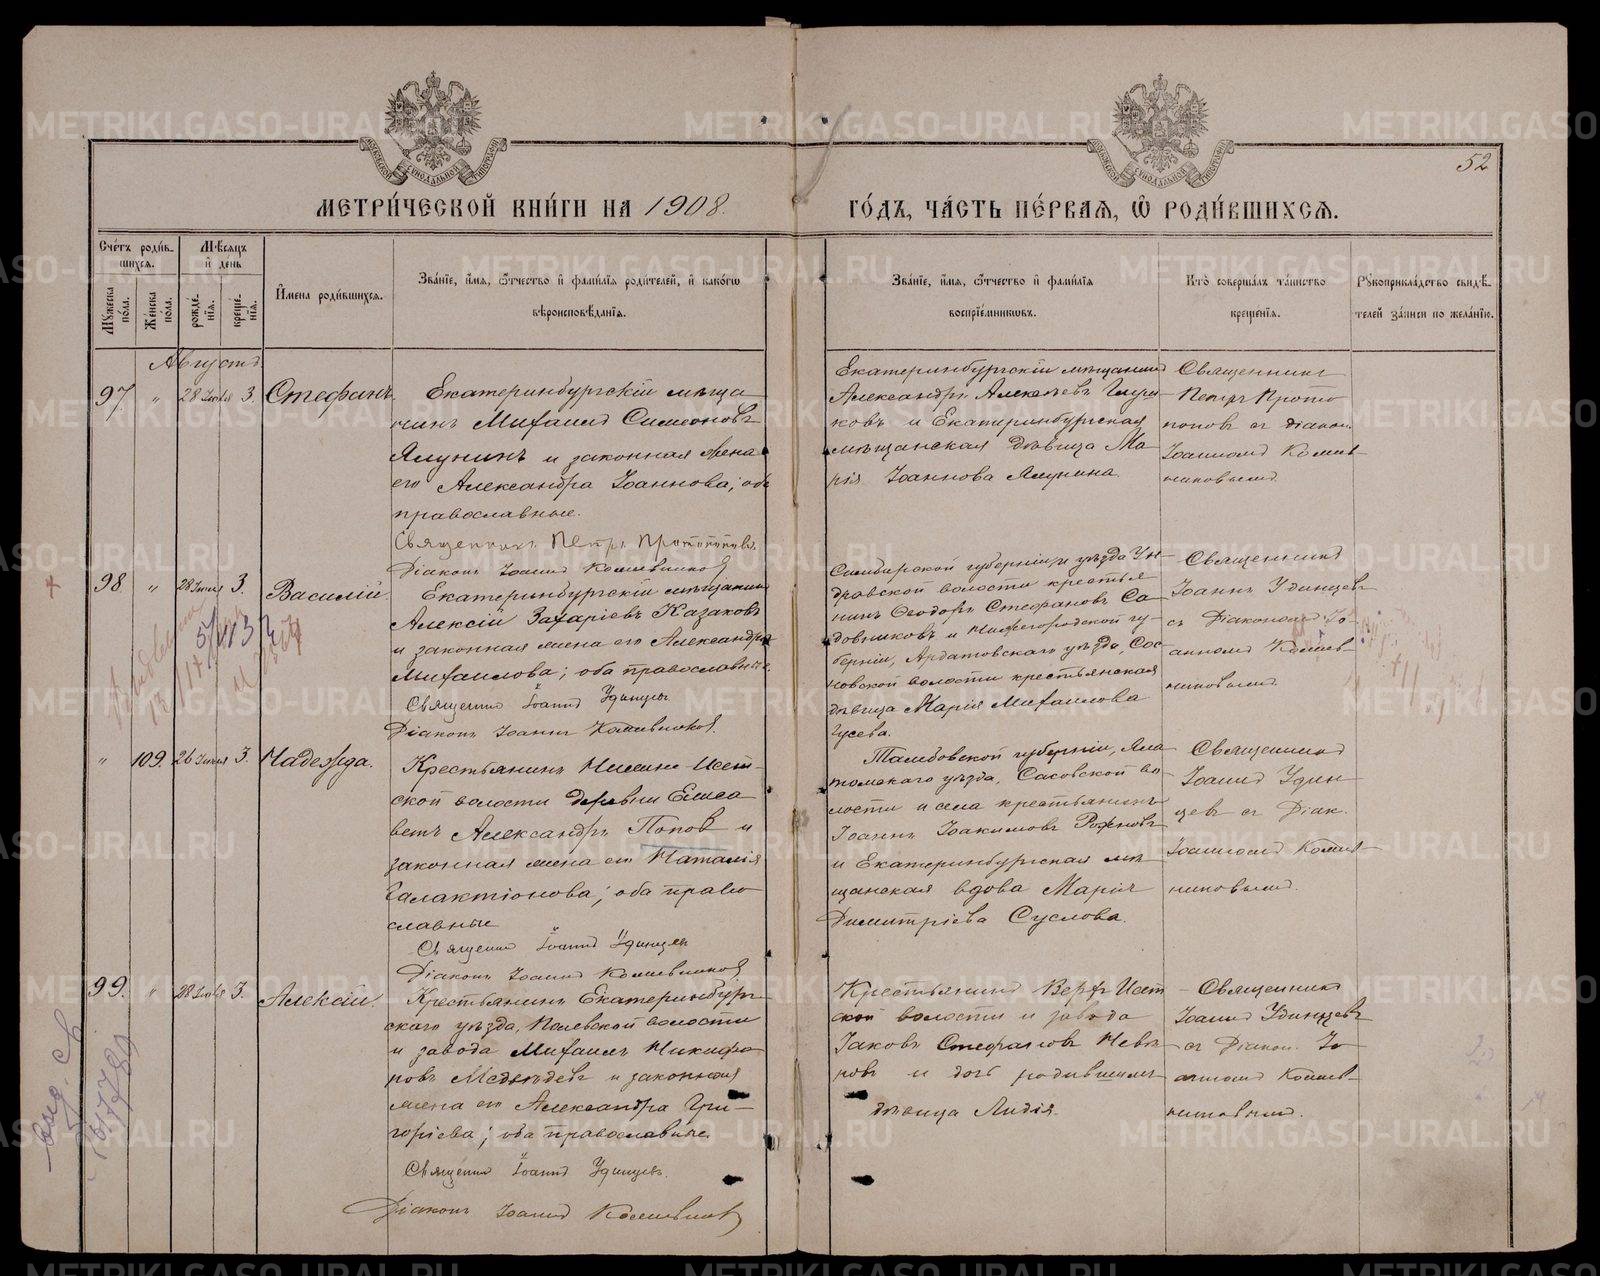 52
МЕТРИ́ЧЕСКОЙ КНИ́ГИ НА 1908.
ГО́ДЪ, ЧА́СТЬ ПЕ́РВАѦ, Ѡ҆ РОДИ́ВШИХСѦ.
Сче́тъ роди́в-
шихсѧ.
Мѣ́сѧцъ
и҆ день
Мꙋжеска по́ла.
Же́нска по́ла.
рожде́-
нїѧ.
креще́-
нїѧ.
И҆мена роди́вшихсѧ.
Зва́нїе, и҆́мѧ, ѻ҆́тчество и҆ фами́лїѧ роди́телей, и҆ како́гѡ
вѣроисповѣ́данїѧ.
Зва́нїе, и҆́мѧ, ѻ҆́тчество и҆ фами́лїѧ
воспрїе́мникѡвъ.
Кто̀ соверша́лъ та́инство
креще́нїѧ.
Рꙋкоприкла́дство свидѣ́-
телей за́писи по жела́нїю.
Августъ
97. " 28 Іюля 3. Стефанъ.
Екатеринбургскій мѣща
нинъ Михаилъ Симеоновъ
Ялунинъ и законная жена
его Александра Іоаннова; оба
православные.
Священникъ Петръ Протопоповъ.
Діаконъ Іоаннъ Коневниковъ
Екатеринбургскій мѣщанинъ
Александръ Алексѣевъ
ковъ и Екатеринбургская
мѣщанская дѣвица Ма
рія Іоаннова Ялунина.
Священникъ
Петръ Прото
поповъ съ діакон.
Іоанномъ
никовымъ.
98. " 28 Іюля 3. Василій.
Екатеринбургскій мѣщанинъ
Алексій Захаріевъ Казаковъ
и законная жена его Александра
Михаилова; оба православные.
Священникъ Іоаннъ Удинцевъ
Діаконъ Іоаннъ
Симбирской губерніи, уѣзда
дравской волости крестья
нинъ Ѳеодоръ Стефановъ Са
довниковъ и Нижегородской гу-
берніи, Ардатовскаго уѣзда, Сос
новской волости крестьянская
дѣвица Марія Михаилова
Гусева.
Священникъ
Іоаннъ Удинцевъ
съ Діакономъ Іо-
анномъ
никовымъ.
" 109. 26 Іюля 3. Надежда.
Крестьянинъ Нижне-Исет-
ской волости деревни Елиса
ветъ Александръ Поповъ и
законная жена его Наталія
Галактіонова; оба право
славные
Священникъ Іоаннъ Удинцевъ
Діаконъ Іоаннъ
Тамбовской губерніи, Ела
томскаго уѣзда, Сасовской во
лости и села крестьянинъ
Іоаннъ Іоакимовъ Рожновъ
и Екатеринбургская мѣ
щанская вдова Марія
Димитріева Суслова.
Священникъ
Іоаннъ Удин
цевъ съ Діак.
Іоанномъ
никовымъ.
99. " 28 Іюля 3. Алексій.
Крестьянинъ Екатеринбург
скаго уѣзда, Полевской волости
и завода Михаилъ Никифо
ровъ Медвѣдевъ и законная
жена его Александра Гри-
горіева; оба православные.
Священникъ Іоаннъ Удинцевъ.
Діаконъ Іоаннъ
Крестьянинъ Верхъ Исет
ской волости и завода
Іаковъ Стефановъ
ровъ и дочь родившимъ
дѣвица Лидія.
Священникъ
Іоаннъ Удинцевъ
съ Діакон. Іо
анномъ
никовымъ.